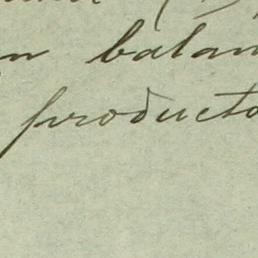 n balan
producto